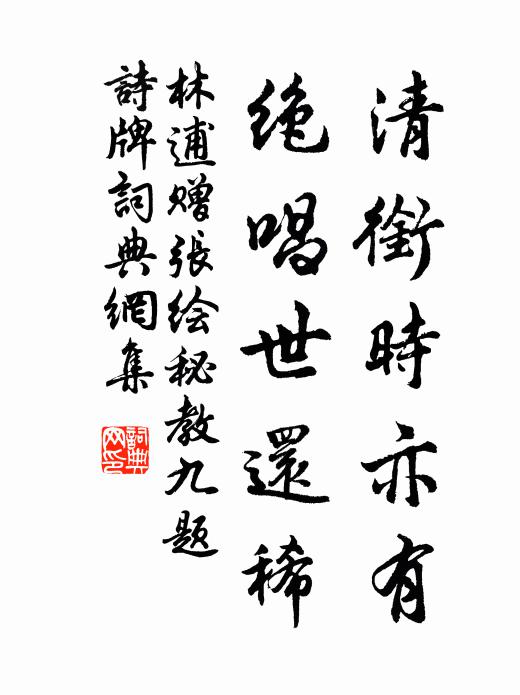 清銜時亦有
绝唱世還稀
林逋赠張绘秘教九题
詩牌詞典網集
詞典
网印